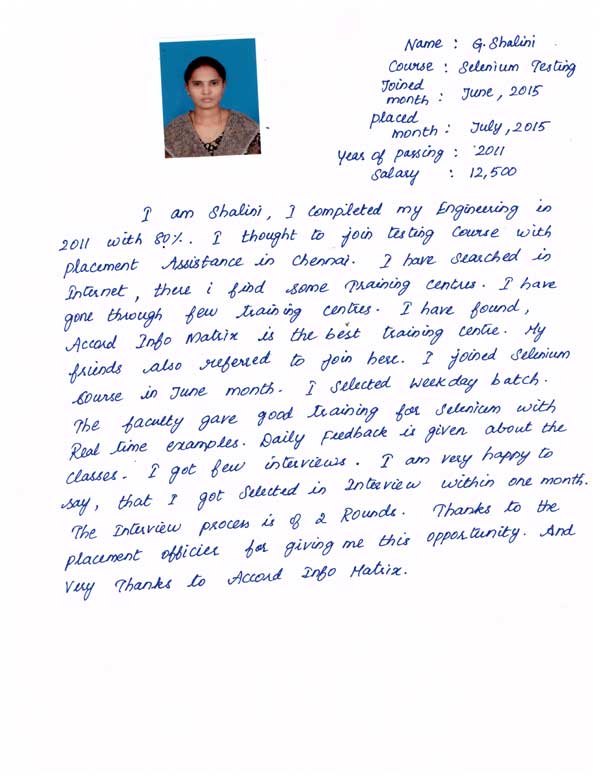 Name : G. Shalini
Course : Selenium Testing
Joined
month : June, 2015
placed
month : July, 2015
Year of passing : 2011
Salary : 12,500
I am Shalini, I completed my Engineering in
2011 with 80%. I thought to join testing Course with
placement Assistance in Chennai. I have searched in
Internet, there i find some Training centres. I have
gone through few training centres. I have found,
Accord Info Matrix is the best training centre. My
friends also referred to join here. I joined Selenium
Course in June month. I Selected Weekday batch.
The faculty gave good training for Selenium with
Real time examples. Daily Feedback is given about the
classes. I got few interviews. I am very happy to
say, that I got Selected in Interview within one month.
The Interview process is of 2 Rounds. Thanks to the
placement officier for giving me this opportunity. And
Very Thanks to Accord Info Matrix.